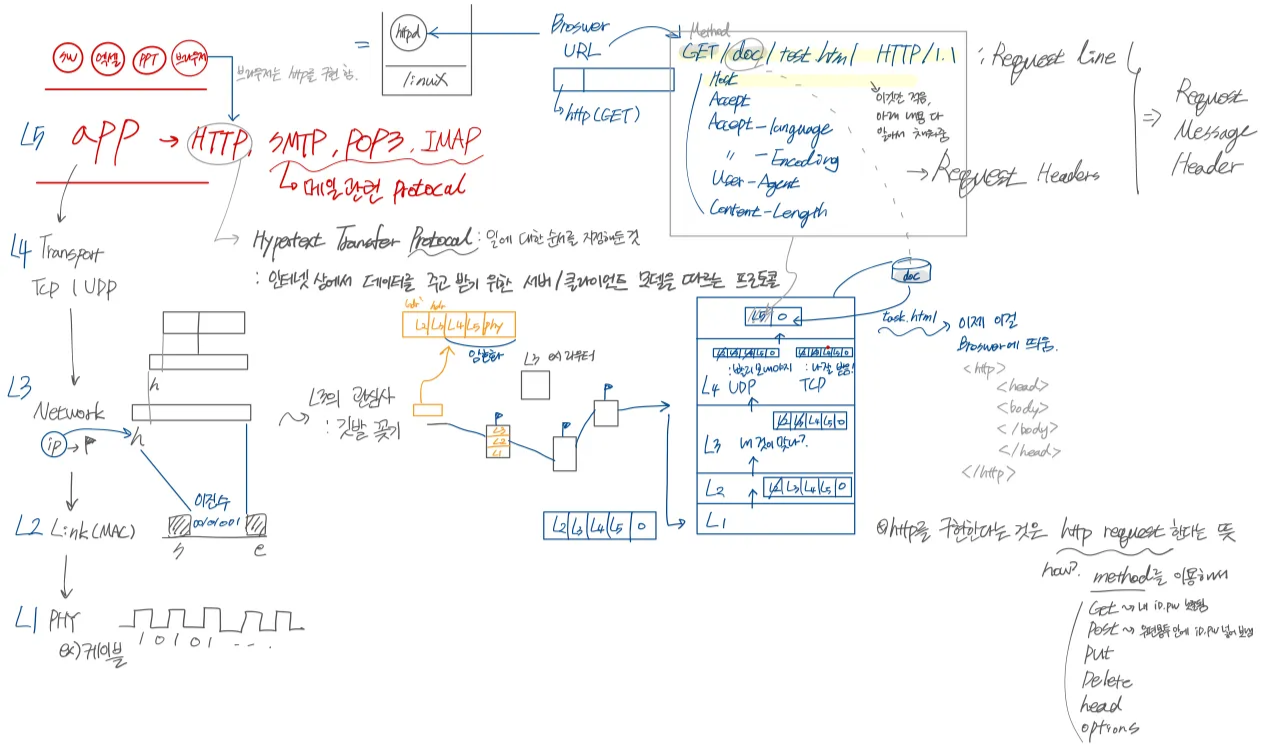 SW 엑셀 PPT 브라우저
브라우저는 http를 구현함.
=
httpd
linux
Broswer
URL
http(GET)
Method
GET/doc/test.html HTTP/1.1
: Request Line
Host
Accept
Accept-language
" -Encoding
User-Agent
Content-Length
이것만 적음,
아래 내용 다
알아서 채워줌
→ Request Headers
⇒ Request
Message
Header
L5 app → HTTP, SMTP, POP3, IMAP
메일관련 protocal
Hypertext Transfer Protocal : 일에 대한 순서를 지정해둔 것
: 인터넷 상에서 데이터를 주고 받기 위한 서버/클라이언트 모델을 따르는 프로토콜
L4 Transport
TCP / UDP
L3
Network
ip →
h
h
이진수
001001
s e
L2 Link(MAC)
L1 PHY
ex) 케이블
1 0 1 0 1 - - -
L3의 관심사
: 깃발 꽂기
hdr hdr
L2 L3 L4 L5 phy
암호화
L3 ex) 라우터
L3
L2
L1
L2 L3 L4 L5 0
doc
L5 0
L2 L3 L4 L5 0
L2 L3 L4 L5 0
L4 UDP TCP
L2 L3 L4 L5 0
L3 내 것이 맞나?
L2 L2 L3 L4 L5 0
L1
task.html
이제 이걸
Broswer에 띄움.
<http>
<head>
<body>
</body>
</head>
</http>
http를 구현한다는 것은 http request 한다는 뜻
how? method를 이용해서
Get ~> 내 iD.pw
Post ~> 우편봉투 안에 iD.pw 넣어
put
Delete
head
options